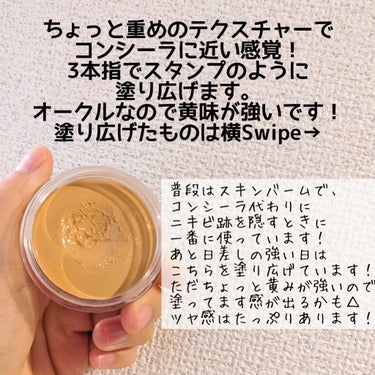 ちょっと重めのテクスチャーで
コンシーラに近い感覚！
3本指でスタンプのように
塗り広げます。
オークルなので黄味が強いです！
塗り広げたものは横Swipe→
普段はスキンバームで、
コンシーラ代わりに
ニキビ跡を隠すときに
一番に使っています！
あと日差しの強い日は
こちらを塗り広げています！
ただちょっと黄みが強いので
塗ってます感が出るかも△
ツヤ感はたっぷりあります！